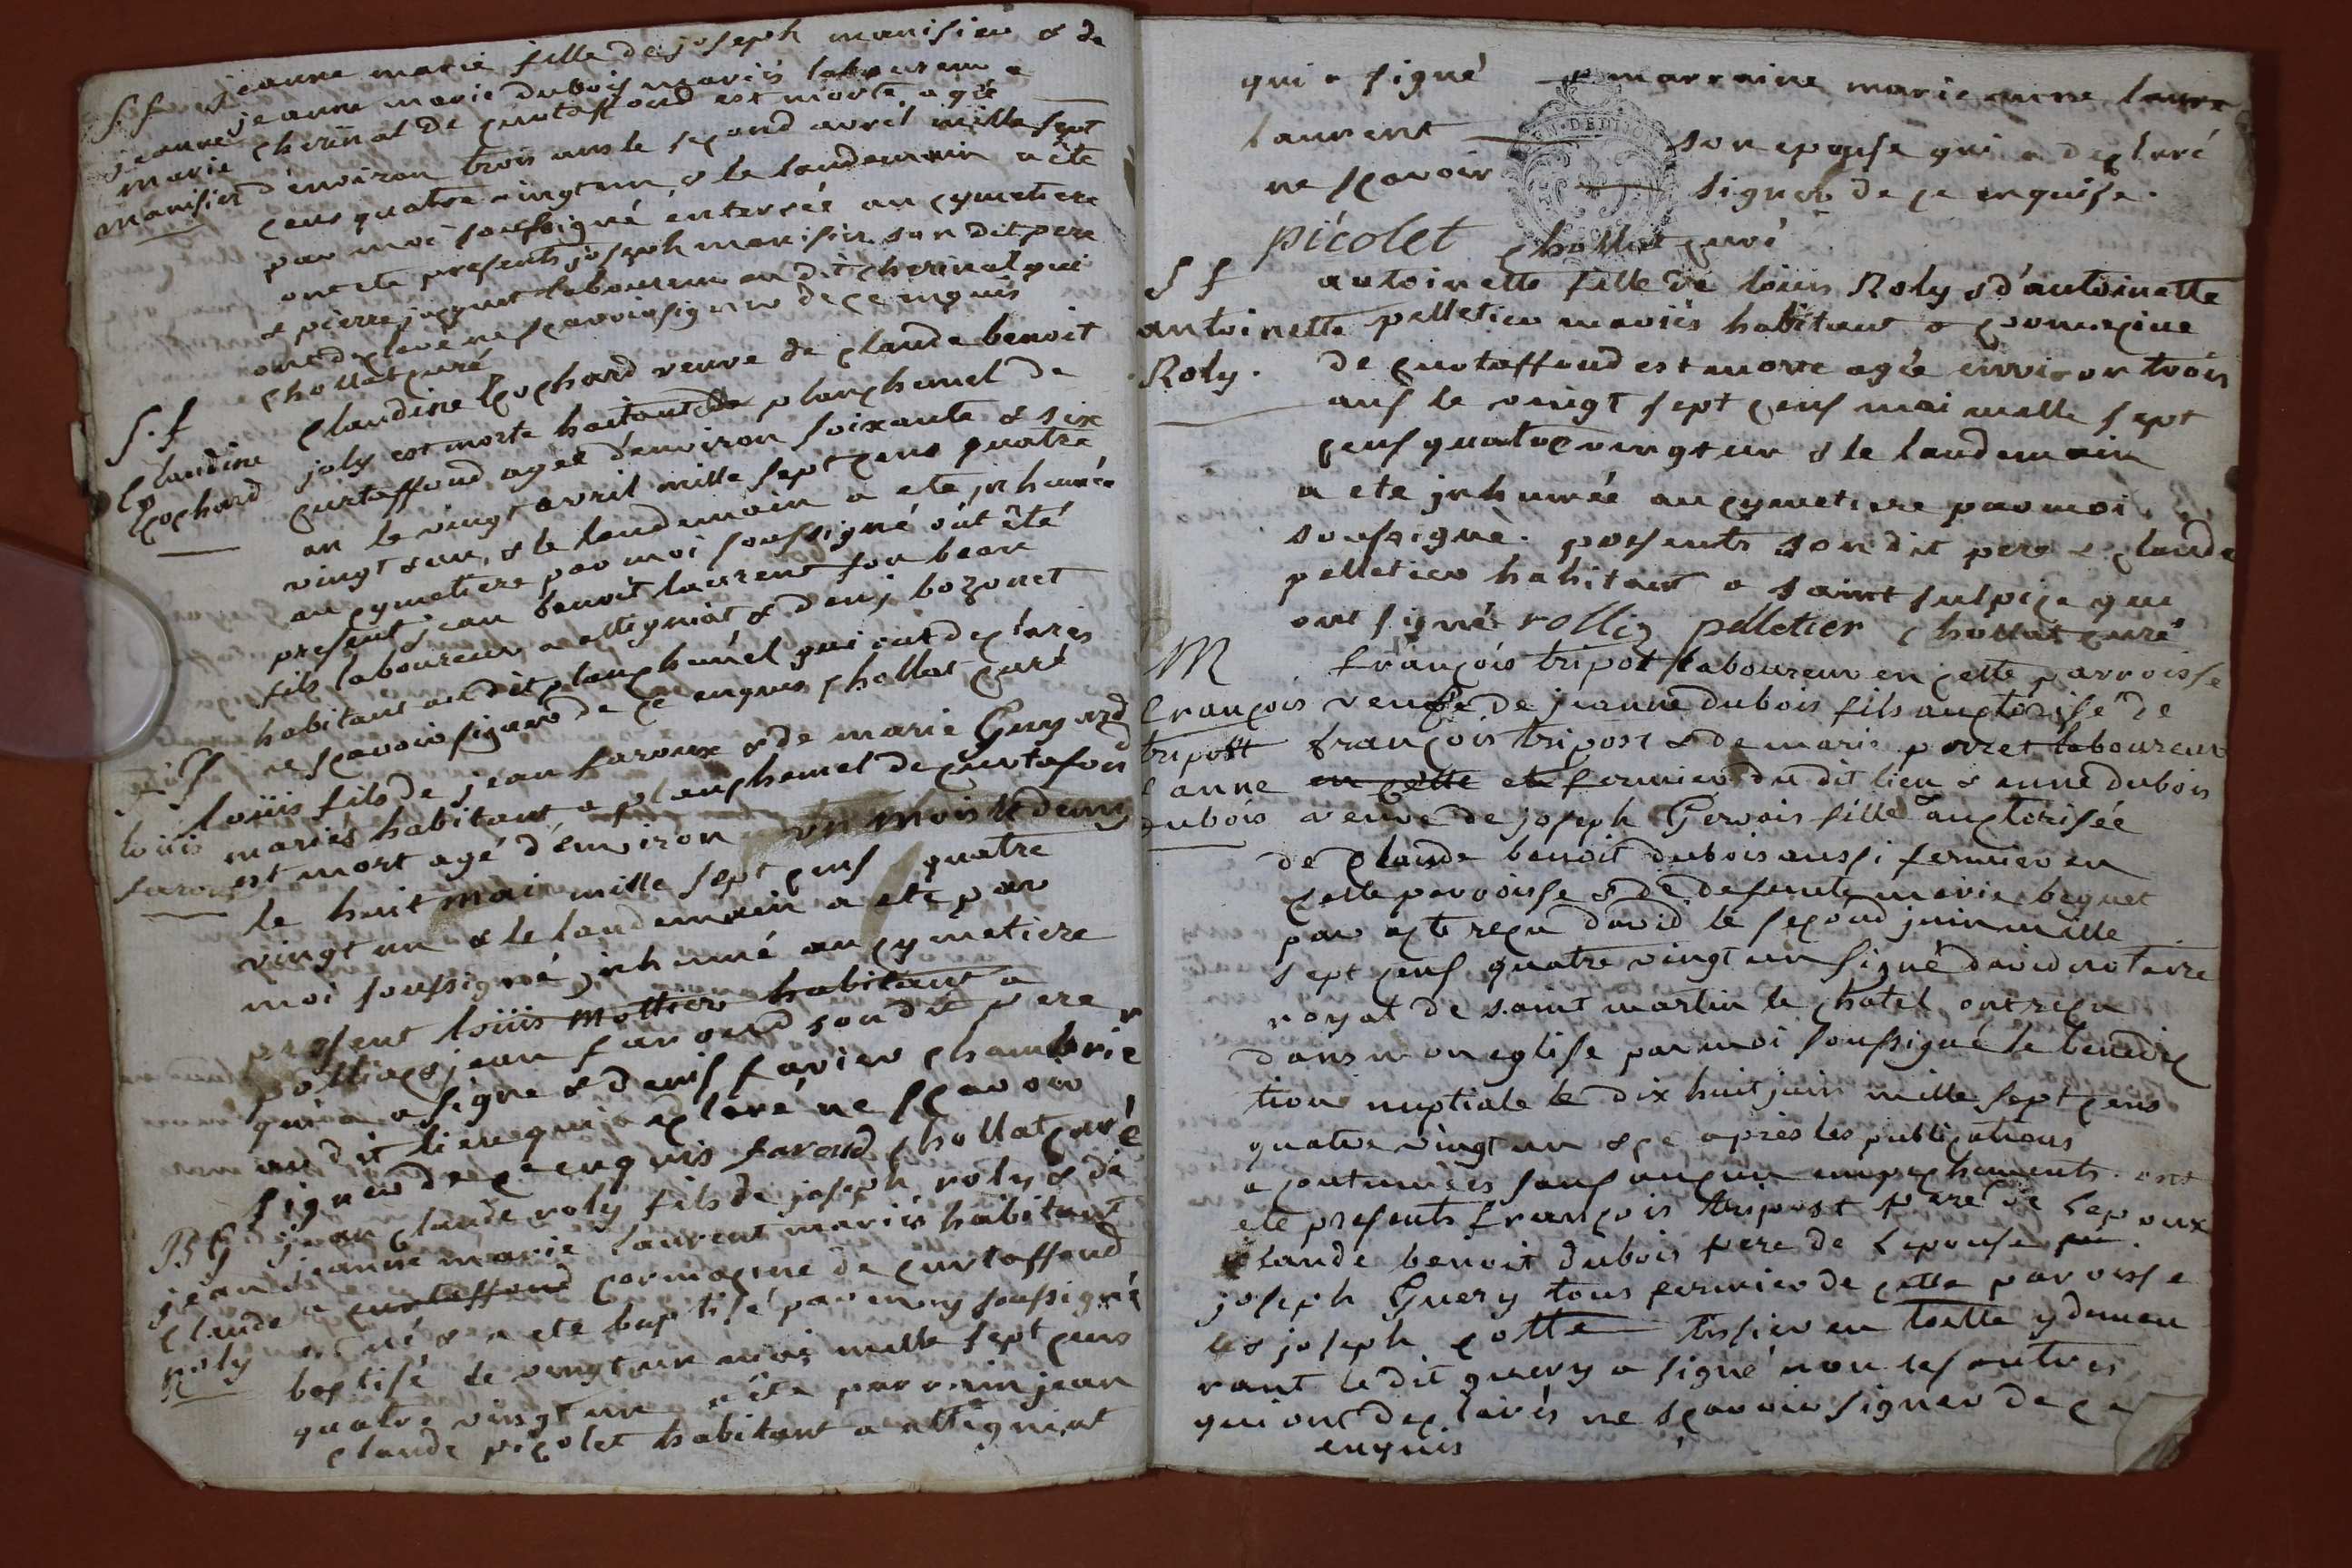 S f jeanne marie fille de joseph manisier & de
jeanne jeanne marie dubois mariés laboureur a
marie cherinal de curtaffond est morte agée
manisier d'environ trois ans le second avril mille sept
cens quatre vingt un, & le landemain a été
par moi soussigné enterrée au cymetiere
ont été presents joseph manisier son dit pere
& pierre jacquet laboureur au dit cherinal qui
ont declaré ne scavoir signer de ce enquis
chollat curé
S. f
Claudine Cochard veuve de claude benoit
Claudine joly est morte habitant planchemel de
Cochard curtaffond agée d'environ soixante & six
an le vingt avril mille sept cens quatre
vingt & un, & le landemain a été inhumée
au cymetiere par moi soussigné ont été
present jean benoit laurent son beau
fils laboureur a attignat & denis bozonet
habitant au dit planchemel qui ont declarés
ne scavoir signer de ce enquis chollat curé
S f
loüis fils de jean faroux & de marie Guyard
loüis mariés habitant a planchemel de curtafond
est mort agé d'environ un mois & demy
le huit mai mille sept cens quatre
vingt un & le landemain a été par
moi soussigné inhumé au cymetiere
present loüis mottier habitant a
polliac & jean faroud son dit pere
qui a signé & denis favier chambrier
au dit lieu qui a declaré ne scavoir
signer de ce enquis faroud chollat curé
B G jean claude roly fils de joseph roly & de
jean jeanne marie laurent mariés habitant
claude a curtaffond cormacine de curtaffond
roly est né & a été baptisé par moy soussigné
baptisé le vingt un mai mille sept cens
quatre vingt un a été parrain jean
claude picolet habitant a attignat
qui a signé & marraine marie anne laure
laurent son epouse qui a declaré
ne scavoir signer de ce enquise.
picolet chollat curé
S f antoinette fille de loüis Roly & d'antoinette
antoinette pelletier mariés habitant a cormacine
Roly. de curtaffond est morte agée environ trois
ans le vingt sept cens mai mille sept
cens quatre vingt un & le landemain
a été inhumée au cymetiere par moi
soussigné. presents son dit pere & claude
pelletier habitant a saint sulpice qui
ont signé rollis pelletier chollat curé
M françois tripot laboureur en cette parroisse
françois veufe de jeanne dubois fils auctorisé de
tripost françois tripost & de marie perret laboureur
anne en cette et fermier du dit lieu & anne dubois
dubois veuve de joseph Gervais fille auctorisée
de Claude benoit dubois aussi fermier en
cette parroisse & de defunte marie beguet
par acte reçu david le second juin mille
sept cens quatre vingt un signé david notaire
royal de saint martin le chatel, ont reçu
dans mon eglise par moi soussigné la benedic
tion nuptiale le dix huit juin mille sept cens
quatre vingt un & ce après les publications
acoutumées sans aucun empechements. ont
été presents françois tripost pere de l'epoux
claude benoit dubois pere de l'epouse
joseph Guery tous fermier de cette paroisse
& joseph cotte tissier en toille y demeu
rant le dit guery a signé non les autres
qui ont declarés ne scavoir signer de ce
enquis